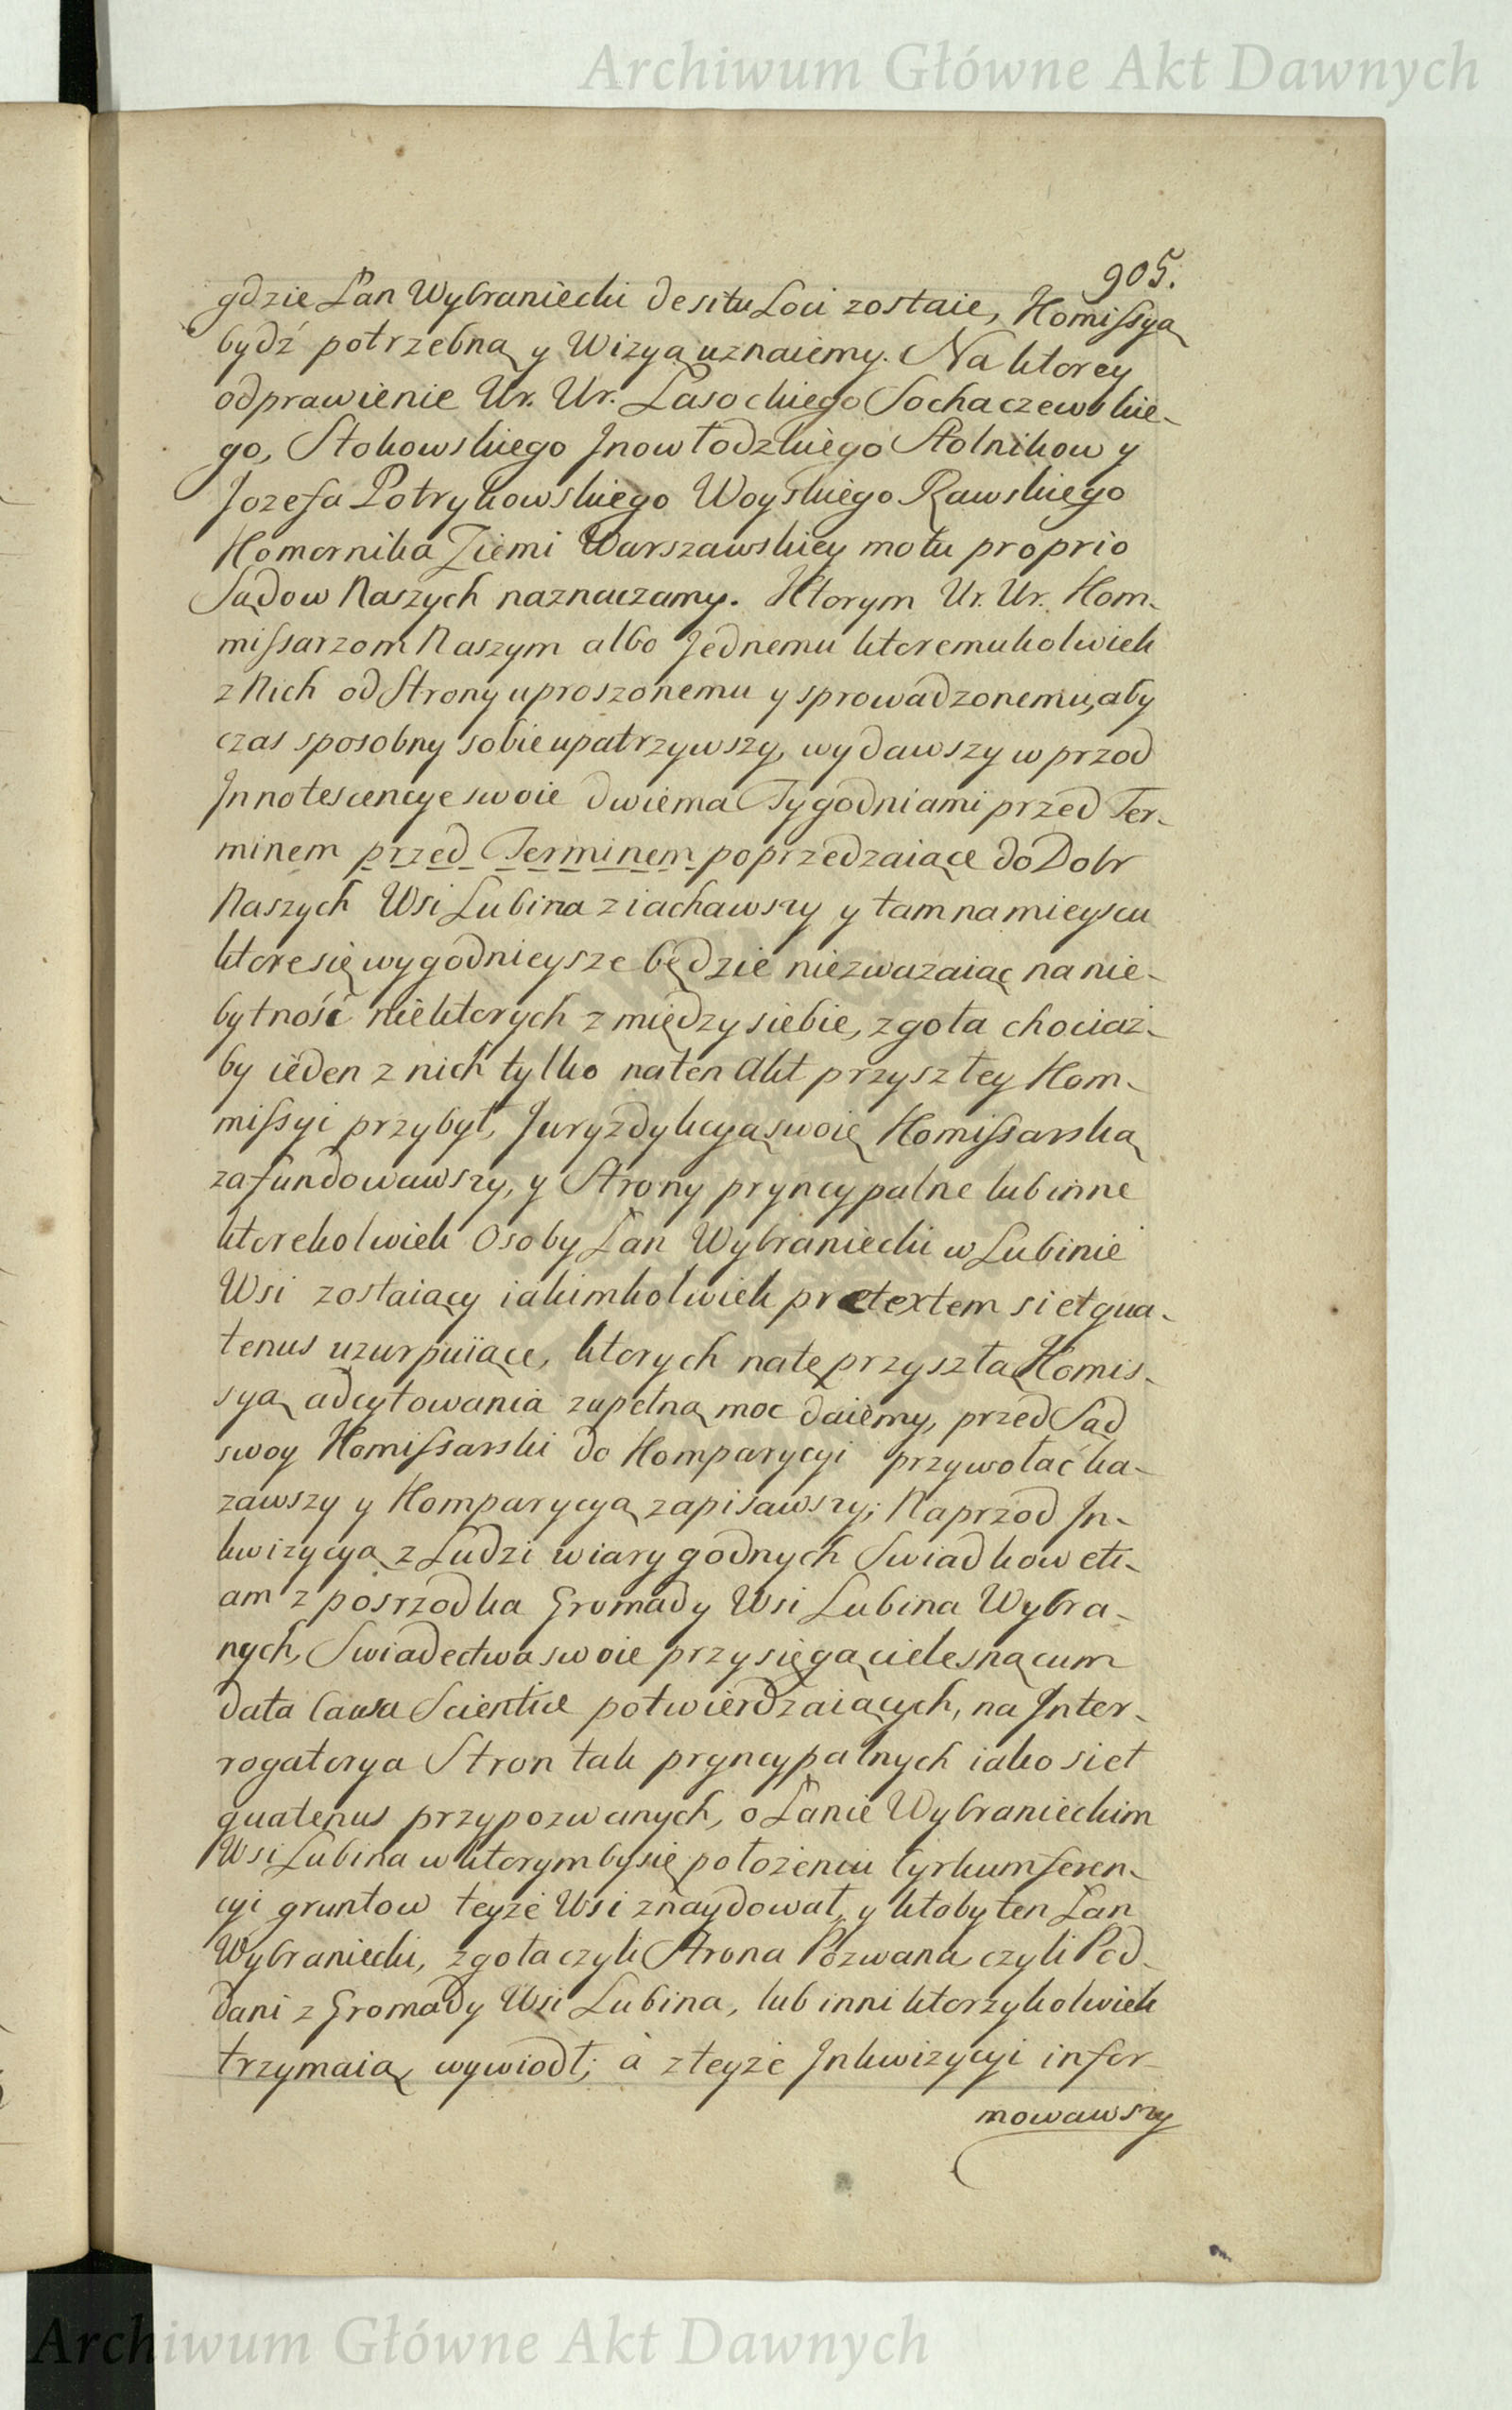 Archiwum Główne Akt Dawnych
905.
gdzie Łan Wybraniecki de situ Loci zostaie, Komissyą
bydź potrzebną y Wizyą uznaiemy. Na ktorey
odprawienie Ur. Ur. Lasockiego Sochaczewskie-
go, Stokowskiego Jnowłodzkiego Stolnikow y
Jozefa Potrykowskiego Woyskiego Rawskiego
Komornika Ziemi Warszawskiey motu proprio
Sądow Naszych naznaczamy. Ktorym Ur. Ur. Kom-
missarzom Naszym albo Jednemu ktoremukolwiek
z Nich od Strony uproszonemu y sprowadzonemu, aby
czas sposobny sobie upatrzywszy, wydawszy w przod
Jnnotescencye swoie dwiema Tygodniami przed Ter-
minem przed Terminem poprzedzaiące do Dobr
Naszych Wsi Lubina ziachawszy y tam na mieyscu
ktore się wygodnieysze będzie niezwazaiąc na nie-
bytność niektorych z między siebie, zgoła chociaż-
by ieden z nich tylko na ten Akt przyszłey Kom-
missyi przybył, Juryzdykcyą swoię Komissarską
zafundowawszy, y Strony pryncypalne lub inne
ktorekolwiek Osoby Łan Wybraniecki w Lubinie
Wsi zostaiący iakimkolwiek pretextem si et qua-
tenus uzurpuiące, ktorych na tę przyszłą Komis-
syą adcytowania zupełną moc daiemy, przed Sąd
swoy Komissarski do Komparycyi przywołać ka-
zawszy y Komparycyą zapisawszy; Naprzod Jn-
kwizycyą z Ludzi wiary godnych Swiadkow eti-
am z posrzodka Gromady Wsi Lubina Wybra-
nych, Swiadectwa swoie przysięgą cielesną cum
data Causa Scientiæ potwierdzaiących, na Jnter-
rogatorya Stron tak pryncypalnych iako si et
quatenus przypozwanych, o Łanie Wybranieckim
Wsi Lubina w ktorym by się położeniu Cyrkumferen-
cyi gruntow teyże Wsi znaydował, y ktoby ten Łan
Wybraniecki, zgoła czyli Strona Pozwana czyli Pod-
dani z Gromady Wsi Lubina, lub inni ktorzykolwiek
trzymaią, wywiodł; à z teyże Jnkwizycyi infor-
mowawszy
Archiwum Główne Akt Dawnych